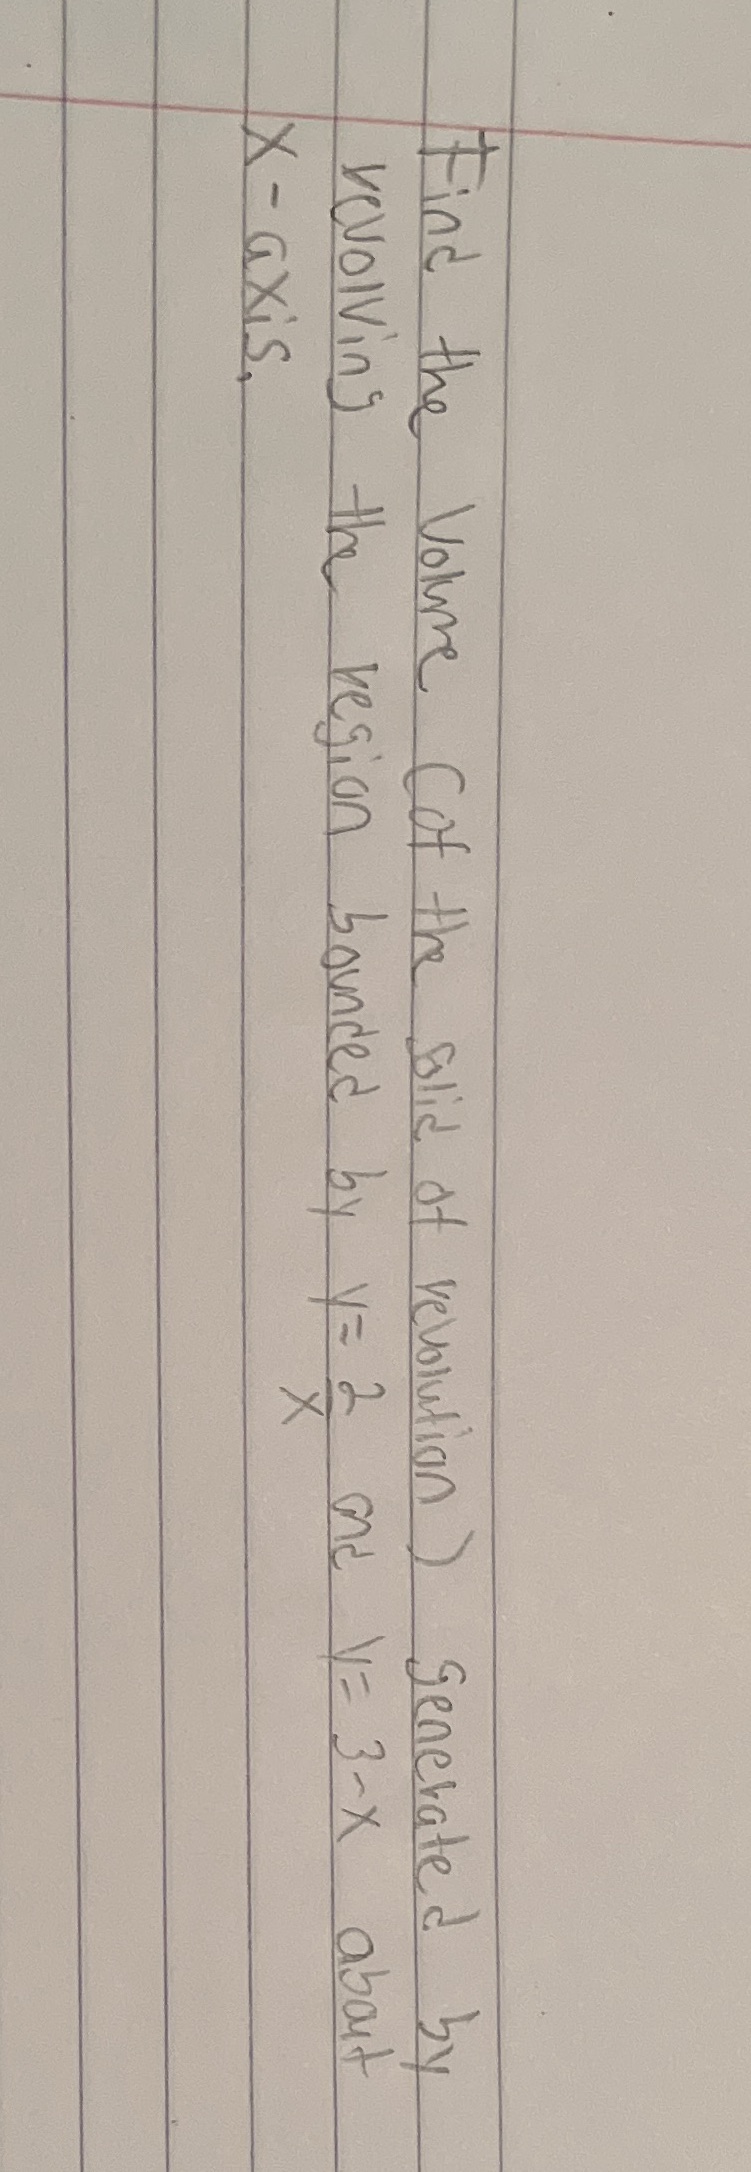 Find the volume (of the solid of revolution) generated by
revolving the region bounded by y = 2/x and y = 3-x about
x-axis.